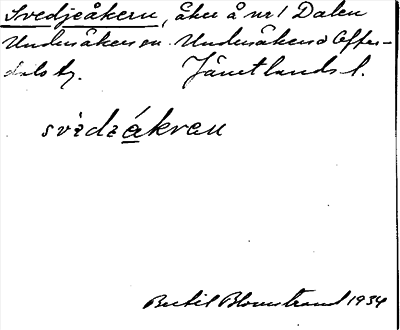 Svedjeåkern, åker å nr 1 Dalen
Undersåkers sn. Undersåkers o Offer-
dals tg. Jämtlands l.
svìdzåkren
Bertil Blomstrand 1934